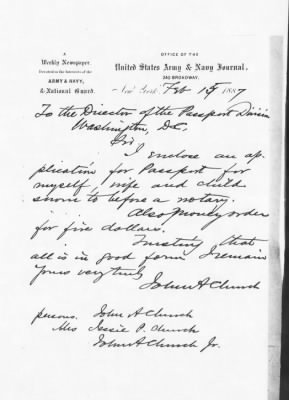 A
Weekly Newspaper,
Devoted to the Interests of the
ARMY & NAVY,
& National Guard.
OFFICE OF THE
United States Army & Navy Journal,
240 BROADWAY,
New York, Feb 15 1887
To the Director of the Passport Division
Washington, D.C.
Sir
I enclose an ap
plication for Passport for
myself, wife and child
sworn to before a notary.
Also money order
for five dollars.
Trusting that
all is in good form I remain
Yours very truly
John A Church
persons. John A Church
Mrs Jessie P. Church
John A Church Jr.